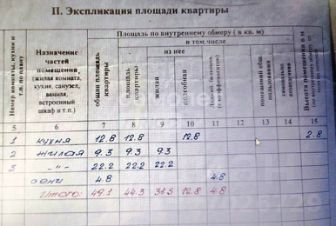 II. Экспликация площади квартиры
Номер комнаты, кухни и т.п. по плану
Назначение частей помещения (жилая комната, кухня, санузел, ванная, встроенный шкаф и т.п.)
Площадь по внутреннему обмеру ( в кв. м)
в том числе
из нее
общая площадь квартиры
площадь квартиры
жилая
подсобная
Высота помещения в м
5 6 7 8 9 10 11 12 13 14 15
1 кухня 12.8 12.8 12.8 2.8
2 жилая 9.3 9.3 9.3
3 -"- 22.2 22.2 22.2
4.8 4.8
Итого: 49.1 44.3 31.5 12.8 4.8